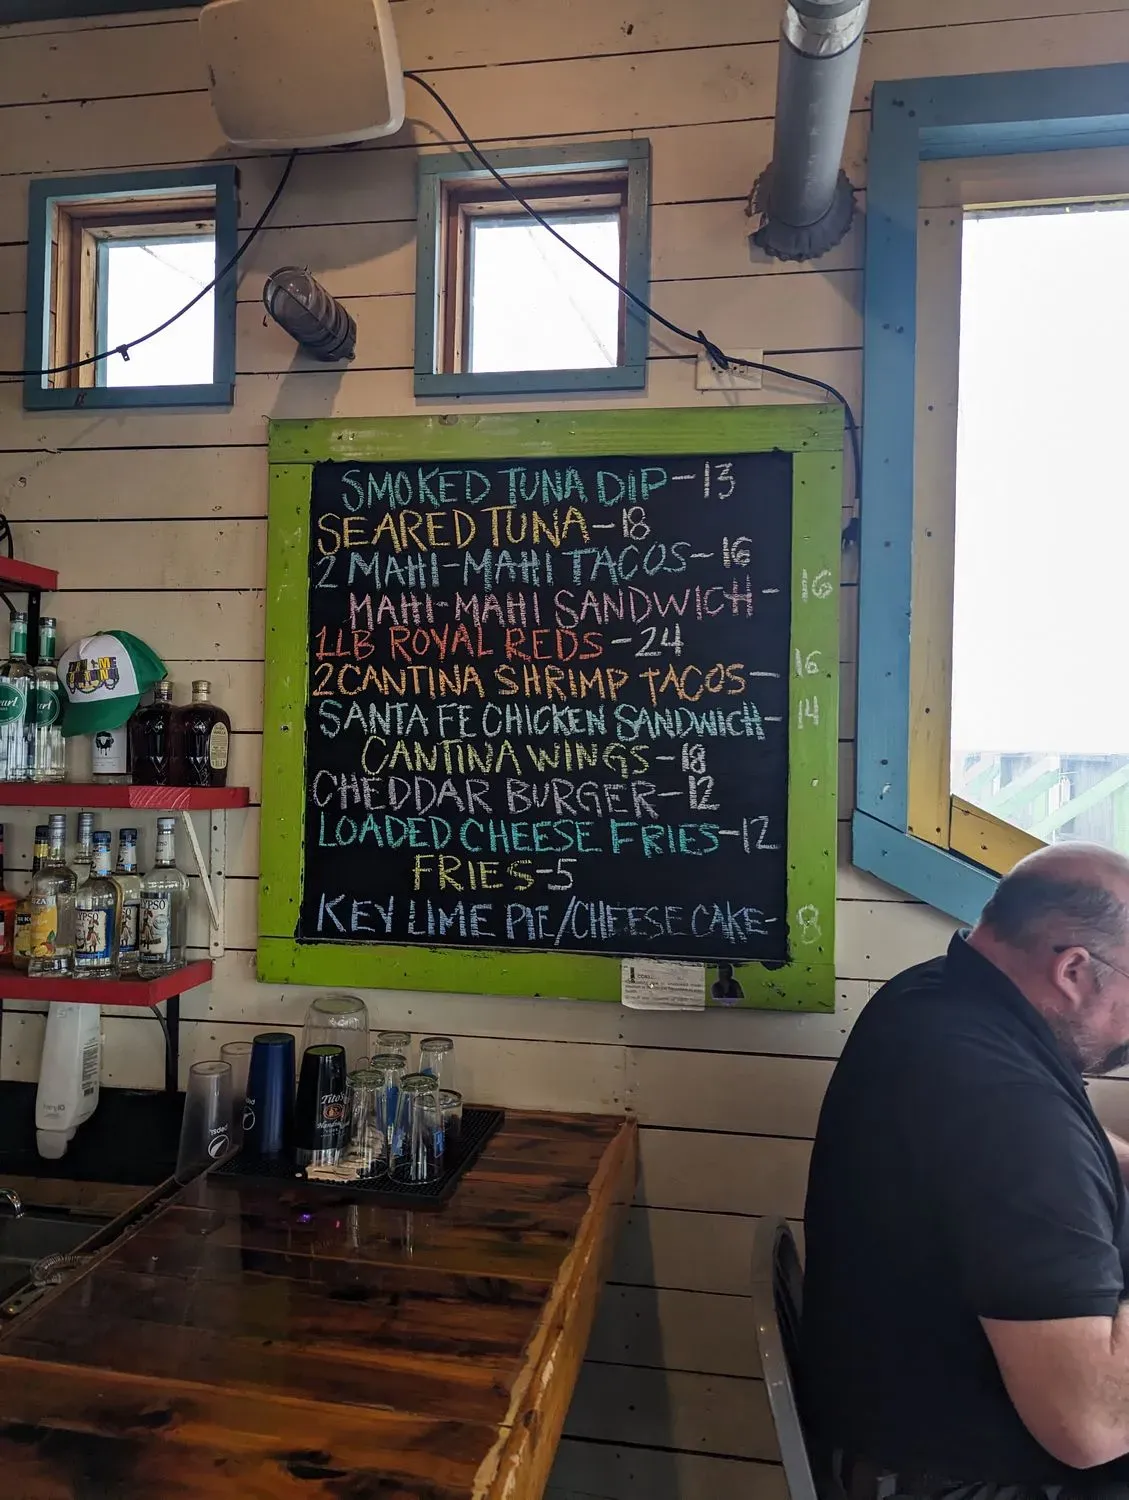 SMOKED TUNA DIP-13
SEARED TUNA-18
2 MAHI-MAHI TACOS-16
MAHI-MAHI SANDWICH-16
1LB ROYAL REDS-24
2 CANTINA SHRIMP TACOS-16
SANTA FE CHICKEN SANDWICH-14
CANTINA WINGS-18
CHEDDAR BURGER-12
LOADED CHEESE FRIES-12
FRIES-5
KEY LIME PIE/CHEESECAKE-8
Tito's
Handmade
pepsi